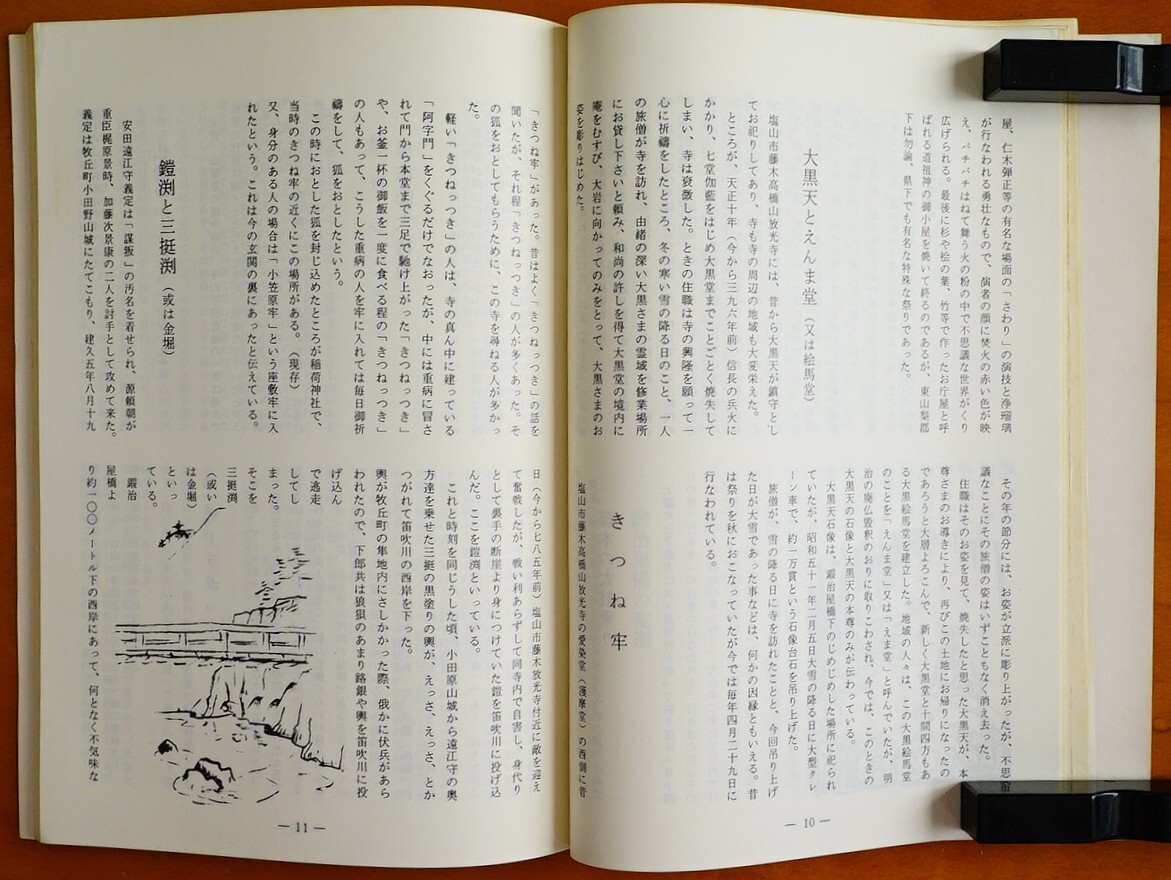 屋、仁木弾正等の有名な場面の「さわり」の演技と浄瑠璃
が行なわれる勇壮なもので、演者の顔に焚火の赤い色が映
え、パチパチはねて舞う火の粉の中で不思議な世界がくり
広げられる。最後に杉や桧の葉、竹等で作ったお庁屋と呼
ばれる道祖神の御小屋を焼いて終るのであるが、東山梨郡
下は勿論、県下でも有名な特殊な祭りであった。
大黒天とえんま堂(又は絵馬堂)
塩山市藤木高橋山放光寺には、昔から大黒天が鎮守とし
てお祀りしてあり、寺も寺の周辺の地域も大変栄えた。
ところが、天正十年(今から三九六年前)信長の兵火に
かかり、七堂伽藍をはじめ大黒堂までことごとく焼失して
しまい、寺は衰微した。ときの住職は寺の興隆を願って一
心に祈禱をしたところ、冬の寒い雪の降る日のこと、一人
の旅僧が寺を訪れ、由緒の深い大黒さまの霊域を修業場所
にお貸し下さいと頼み、和尚の許しを得て大黒堂の境内に
庵をむすび、大岩に向かってのみをとって、大黒さまのお
姿を彫りはじめた。
その年の節分には、お姿が立派に彫り上がったが、不思
議なことにその旅僧の姿はいずこともなく消え去った。
住職はそのお姿を見て、焼失したと思った大黒天が、本
尊さまのお導きにより、再びこの土地にお帰りになったの
であろうと大層よろこんで、新しく大黒堂と十間四方もあ
る大黒絵馬堂を建立した。地域の人々は、この大黒絵馬堂
のことを「えんま堂」又は「えま堂」と呼んでいたが、明
治の廃仏毀釈のおりに取りこわされ、今では、このときの
大黒天の石像と大黒天の本尊のみが伝わっている。
大黒天石像は、鍛治屋橋下のじめじめした場所に祀られ
ていたが、昭和五十一年二月五日大雪の降る日に大型クレ
ーン車で、約一万貫という石像台石を吊り上げた。
旅僧が、雪の降る日に寺を訪れたことと、今回吊り上げ
た日が大雪であった事などは、何かの因縁ともいえる。昔
は祭りを秋におこなっていたが今では毎年四月二十九日に
行なわれている。
きつね牢
塩山市藤木高橋山放光寺の愛染堂(護摩堂)の西側に昔
― 10 ―
「きつね牢」があった。昔はよく「きつねっつき」の話を
聞いたが、それ程「きつねっつき」の人が多くあった。そ
の狐をおとしてもらうために、この寺を尋ねる人が多かっ
た。
軽い「きつねっつき」の人は、寺の真ん中に建っている
「阿字門」をくぐるだけでなおったが、中には重病に冒さ
れて門から本堂まで三足で馳け上がった「きつねっつき」
や、お釜一杯の御飯を一度に食べる程の「きつねっつき」
の人もあって、こうした重病の人を牢に入れては毎日御祈
禱をして、狐をおとしたという。
この時におとした狐を封じ込めたところが稲荷神社で、
当時のきつね牢の近くにこの場所がある。(現存)
又、身分のある人の場合は「小笠原牢」という座敷牢に入
れたという。これは今の玄関の裏にあったと伝えている。
鎧渕と三挺渕(或は金堀)
安田遠江守義定は「謀叛」の汚名を着せられ、源頼朝が
重臣梶原景時、加藤次景康の二人を討手として攻めて来た。
義定は牧丘町小田野山城にたてこもり、建久五年八月十九
日(今から七八五年前)塩山市藤木放光寺付近に敵を迎え
て奮戦したが、戦い利あらずして同寺内で自害し、身代り
として裏手の断崖より身につけていた鎧を笛吹川に投げ込
んだ。ここを鎧渕といっている。
これと時刻を同じうした頃、小田原山城から遠江守の奥
方達を乗せた三挺の黒塗りの輿が、えっさ、えっさ、とか
つがれて笛吹川の西岸を下った。
輿が牧丘町の隼地内にさしかかった際、俄かに伏兵があら
われたので、下郎共は狼狽のあまり路銀や輿を笛吹川に投
げ込ん
で逃走
してし
まった。
そこを
三挺渕
(或い
は金堀)
といっ
ている。
鍛治
屋橋よ
り約一〇〇メートル下の西岸にあって、何となく不気味な
― 11 ―